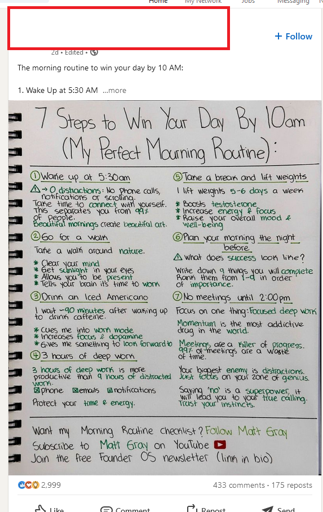 Home My Network Jobs Messaging
+ Follow
2d • Edited •
The morning routine to win your day by 10 AM:
1. Wake Up at 5:30 AM ...more
7 Steps to Win Your Day By 10am
(My Perfect Mourning Routine):
① Wake up at 5:30am
⚠ → 0 distractions: No phone calls,
notifications or scrolling.
Take time to connect with yourself.
This separates you from 99%
of people.
Beautiful mornings create beautiful art.
② Go for a walk
Take a walk around nature.
* Clear your mind
* Get sunlight in your eyes
* Allows you to be present
* Tells your brain it's time to work
③ Drink an Iced Americano
I wait ~90 minutes after waking up
to drink caffeine.
* Cues me into work mode
* Increases focus & dopamine
* Gives me something to look forward to
④ 3 hours of deep work
3 hours of deep work is more
productive than 9 hours of distracted
work.
phone emails notifications
Protect your time & energy.
⑤ Take a break and lift weights
I lift weights 5-6 days a week
* Boosts testosterone
* Increase energy & focus
* Raise your overall mood &
well-being
⑥ Plan your morning the night
before
⚠ What does success look like?
Write down 9 things you will complete
Rank them from 1-9 in order
of importance.
⑦ No meetings until 2:00pm
Focus on one thing: Focused deep work
Momentum is the most addictive
drug in the world.
Meetings are a killer of progress.
99% of meetings are a waste
of time.
Your biggest enemy is distractions.
Just focus on your zone of genius.
Saying "no" is a superpower, it
will lead you to your true calling.
Trust your instincts.
Want my Morning Routine Checklist? Follow Matt Gray
Subscribe to Matt Gray on YouTube
Join the Free Founder OS newsletter (link in bio)
2,999 433 comments • 175 reposts
Like Comment Repost Send